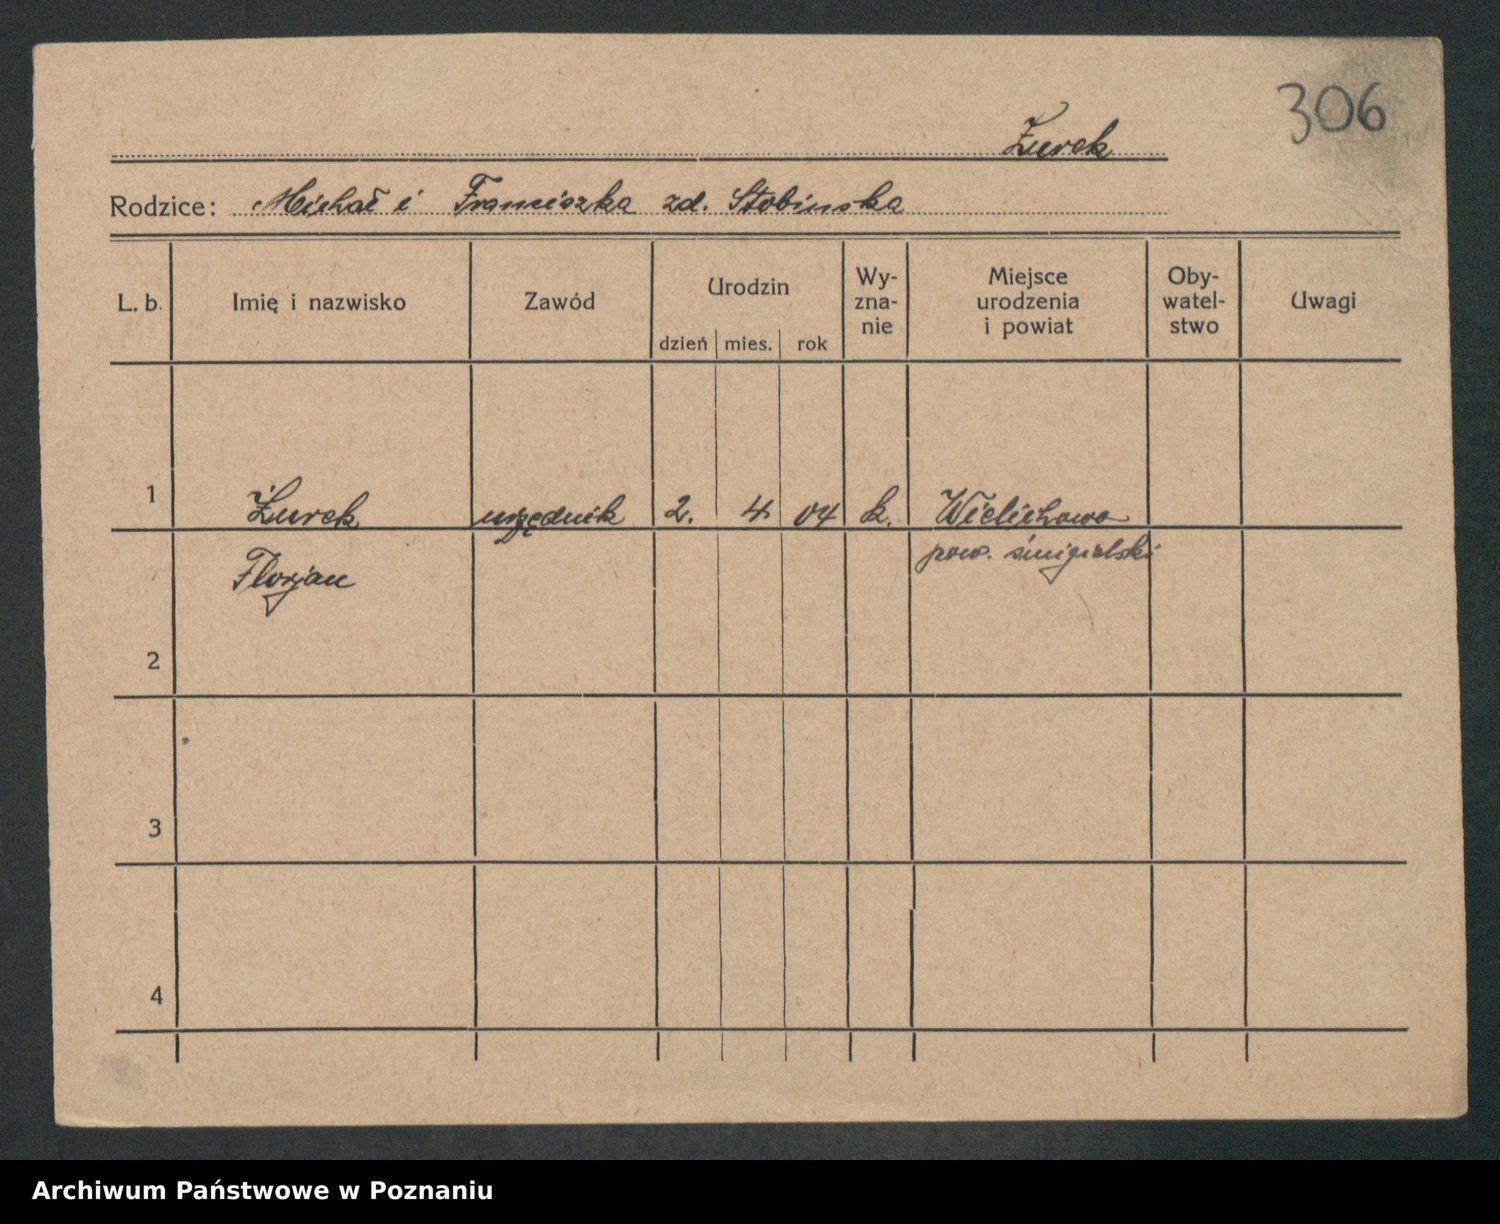 306
Żurek
Rodzice: Michał i Franciszka zd. Stobinska
L. b. Imię i nazwisko Zawód Urodzin dzień mies. rok Wy-zna-nie Miejsce urodzenia i powiat Oby-watel-stwo Uwagi
1 Żurek urzędnik 2. 4. 04 k. Wielichowo
Florjan pow. śmigielski
2
3
4
Archiwum Państwowe w Poznaniu